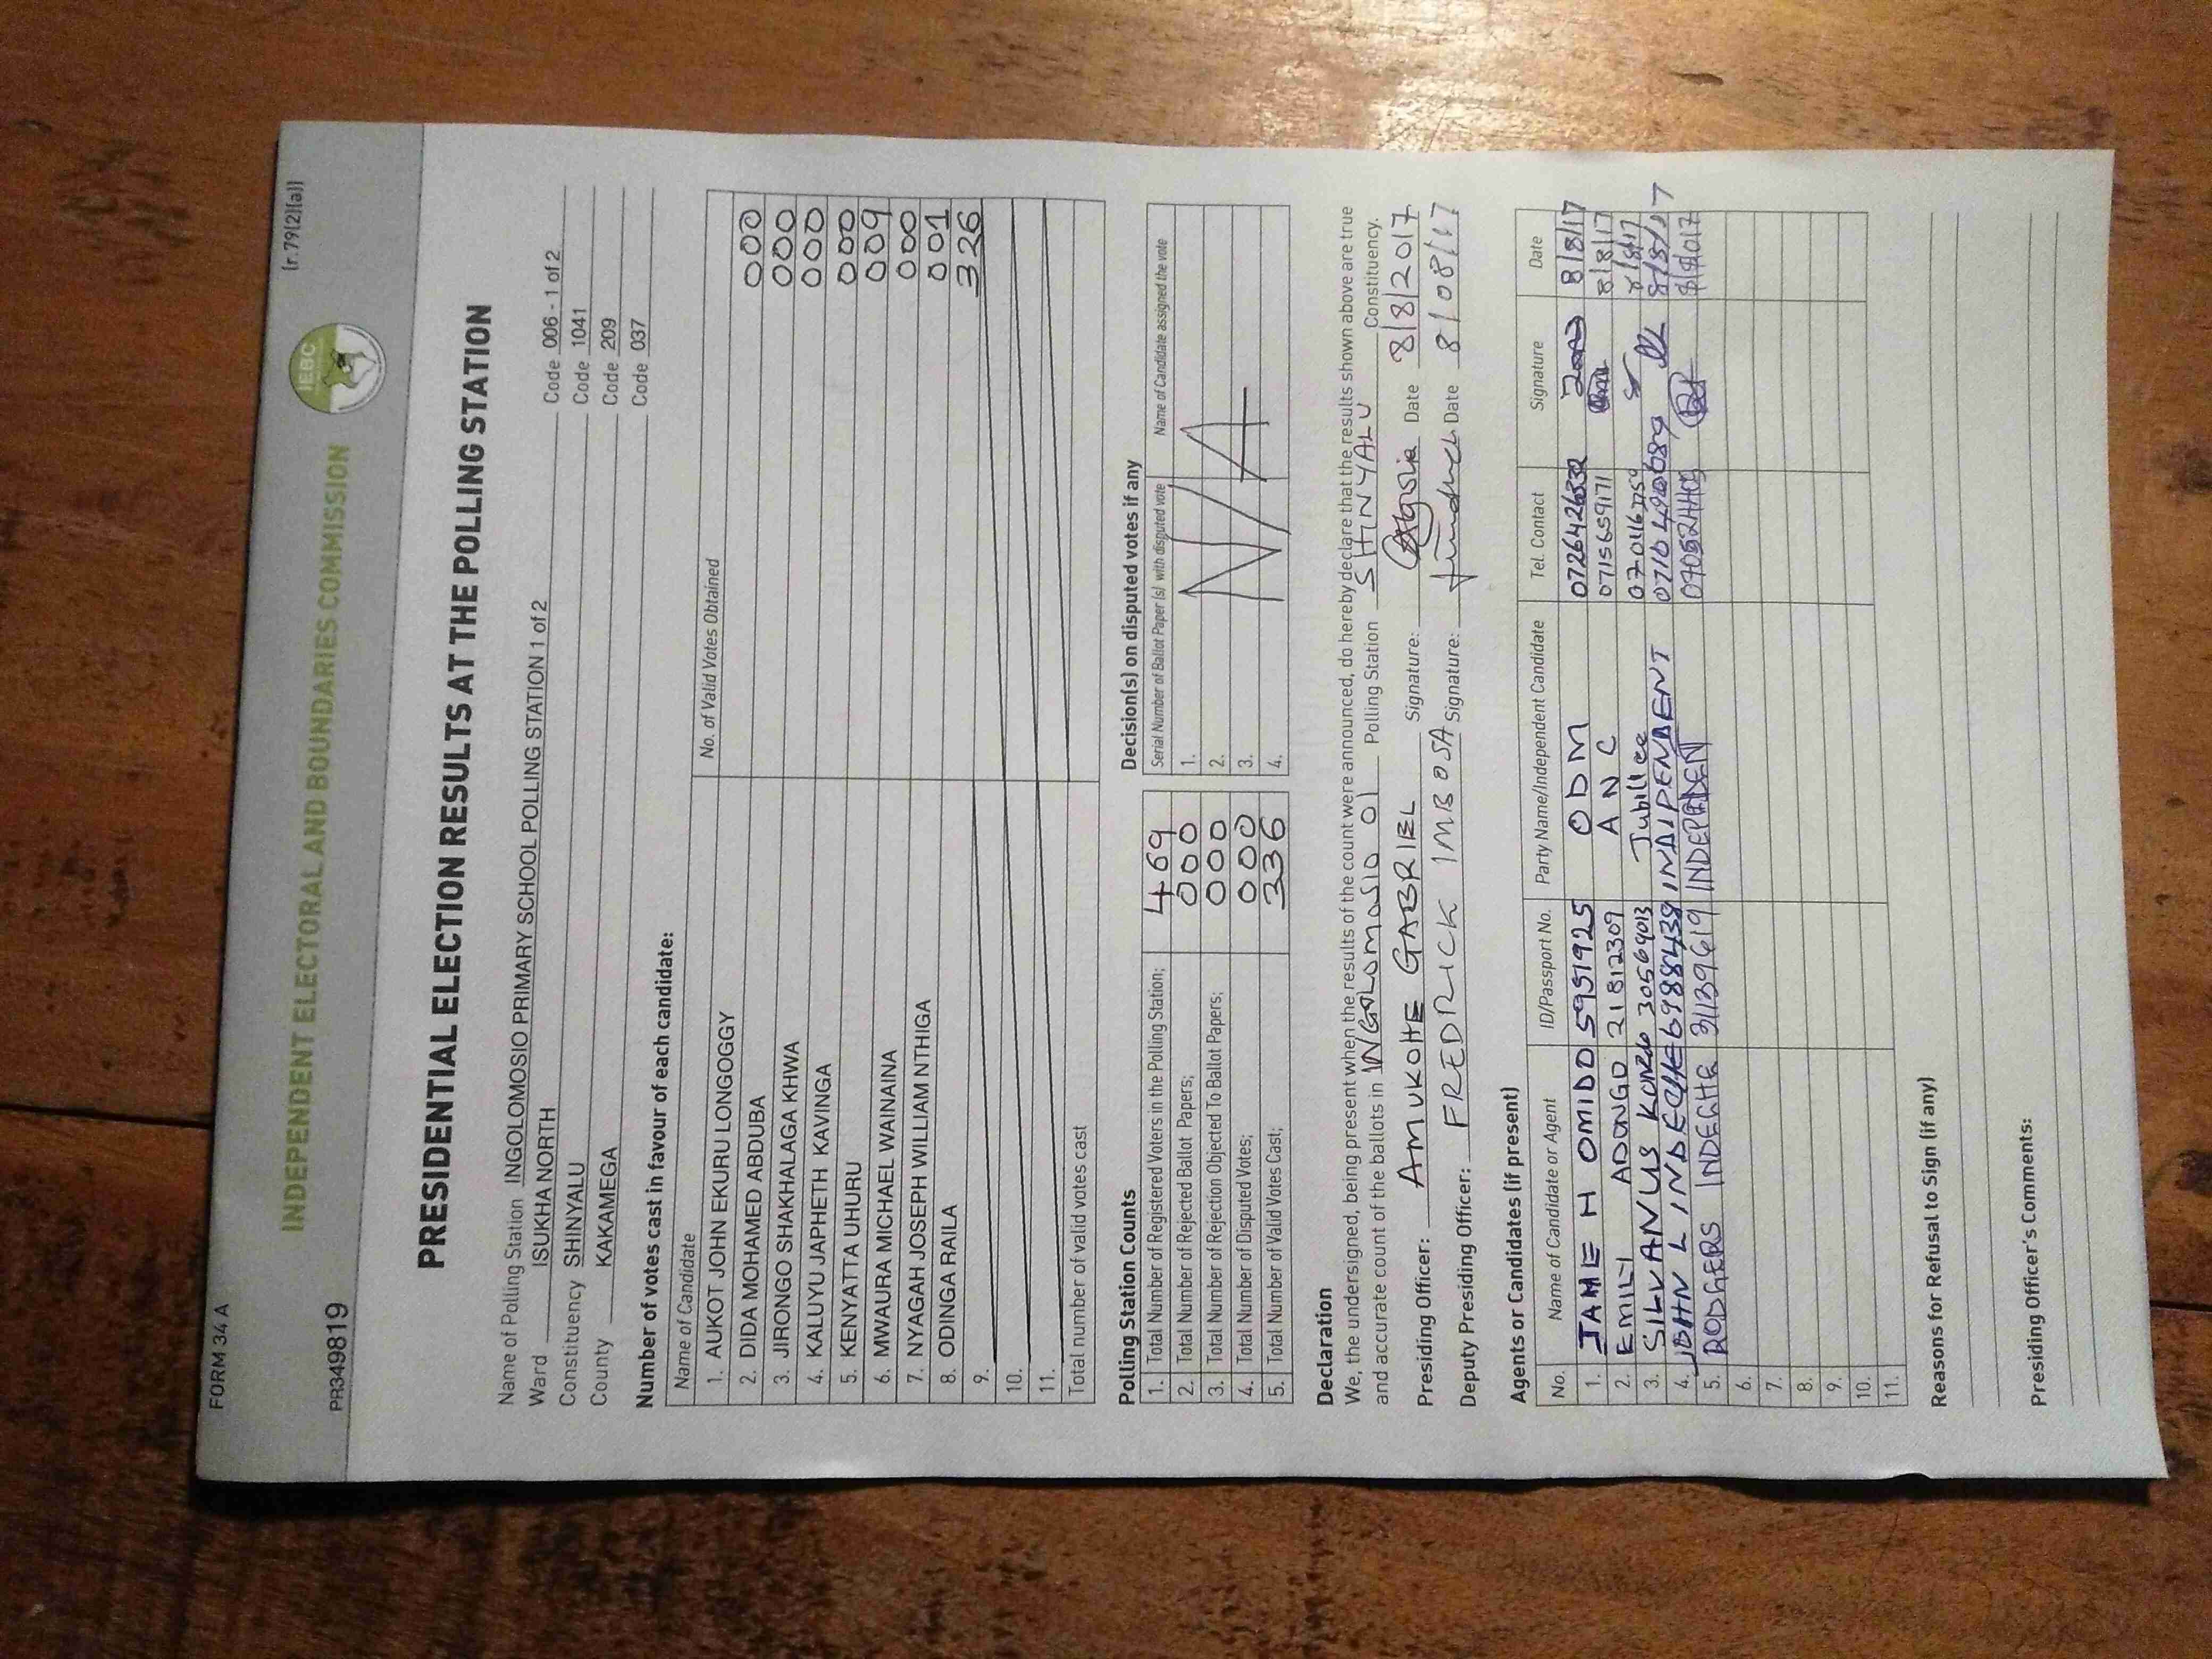 FORM 34 A
[r.79(2)(a)]
IEBC
INDEPENDENT ELECTORAL AND BOUNDARIES COMMISSION
PR349819
PRESIDENTIAL ELECTION RESULTS AT THE POLLING STATION
Name of Polling Station INGOLOMOSIO PRIMARY SCHOOL POLLING STATION 1 of 2 Code 006 - 1 of 2
Ward ISUKHA NORTH Code 1041
Constituency SHINYALU Code 209
County KAKAMEGA Code 037
Number of votes cast in favour of each candidate:
Name of Candidate No. of Valid Votes Obtained
1. AUKOT JOHN EKURU LONGOGGY 000
2. DIDA MOHAMED ABDUBA 000
3. JIRONGO SHAKHALAGA KHWA 000
4. KALUYU JAPHETH KAVINGA 000
5. KENYATTA UHURU 009
6. MWAURA MICHAEL WAINAINA 000
7. NYAGAH JOSEPH WILLIAM NTHIGA 001
8. ODINGA RAILA 326
9.
10.
11.
Total number of valid votes cast
Polling Station Counts
1. Total Number of Registered Voters in the Polling Station; 469
2. Total Number of Rejected Ballot Papers; 000
3. Total Number of Rejection Objected To Ballot Papers; 000
4. Total Number of Disputed Votes; 000
5. Total Number of Valid Votes Cast; 336
Decision(s) on disputed votes if any
Serial Number of Ballot Paper (s) with disputed vote Name of Candidate assigned the vote
1.
2.
3.
4.
N/A
Declaration
We, the undersigned, being present when the results of the count were announced, do hereby declare that the results shown above are true
and accurate count of the ballots in INGOLOMOSIO 01 Polling Station SHINYALU Constituency.
Presiding Officer: AMUKOHE GABRIEL Signature: Date 8/8/2017
Deputy Presiding Officer: FREDRICK IMBOSA Signature: Date 8/08/17
Agents or Candidates (if present)
No. Name of Candidate or Agent ID/Passport No. Party Name/Independent Candidate Tel. Contact Signature Date
1. JAME H OMIDO 5951925 ODM 0726426332 8/8/17
2. EMILY ADONGO 21812309 ANC 0715659171 8/8/17
3. SILVANUS 30569013 Jubillee 8/8/17
4. JOHN L INDECHE INDAIPENDENT 8/8/17
5. RODGERS INDECHE 31139619 INDEPENDENT
6.
7.
8.
9.
10.
11.
Reasons for Refusal to Sign (if any)
Presiding Officer's Comments: